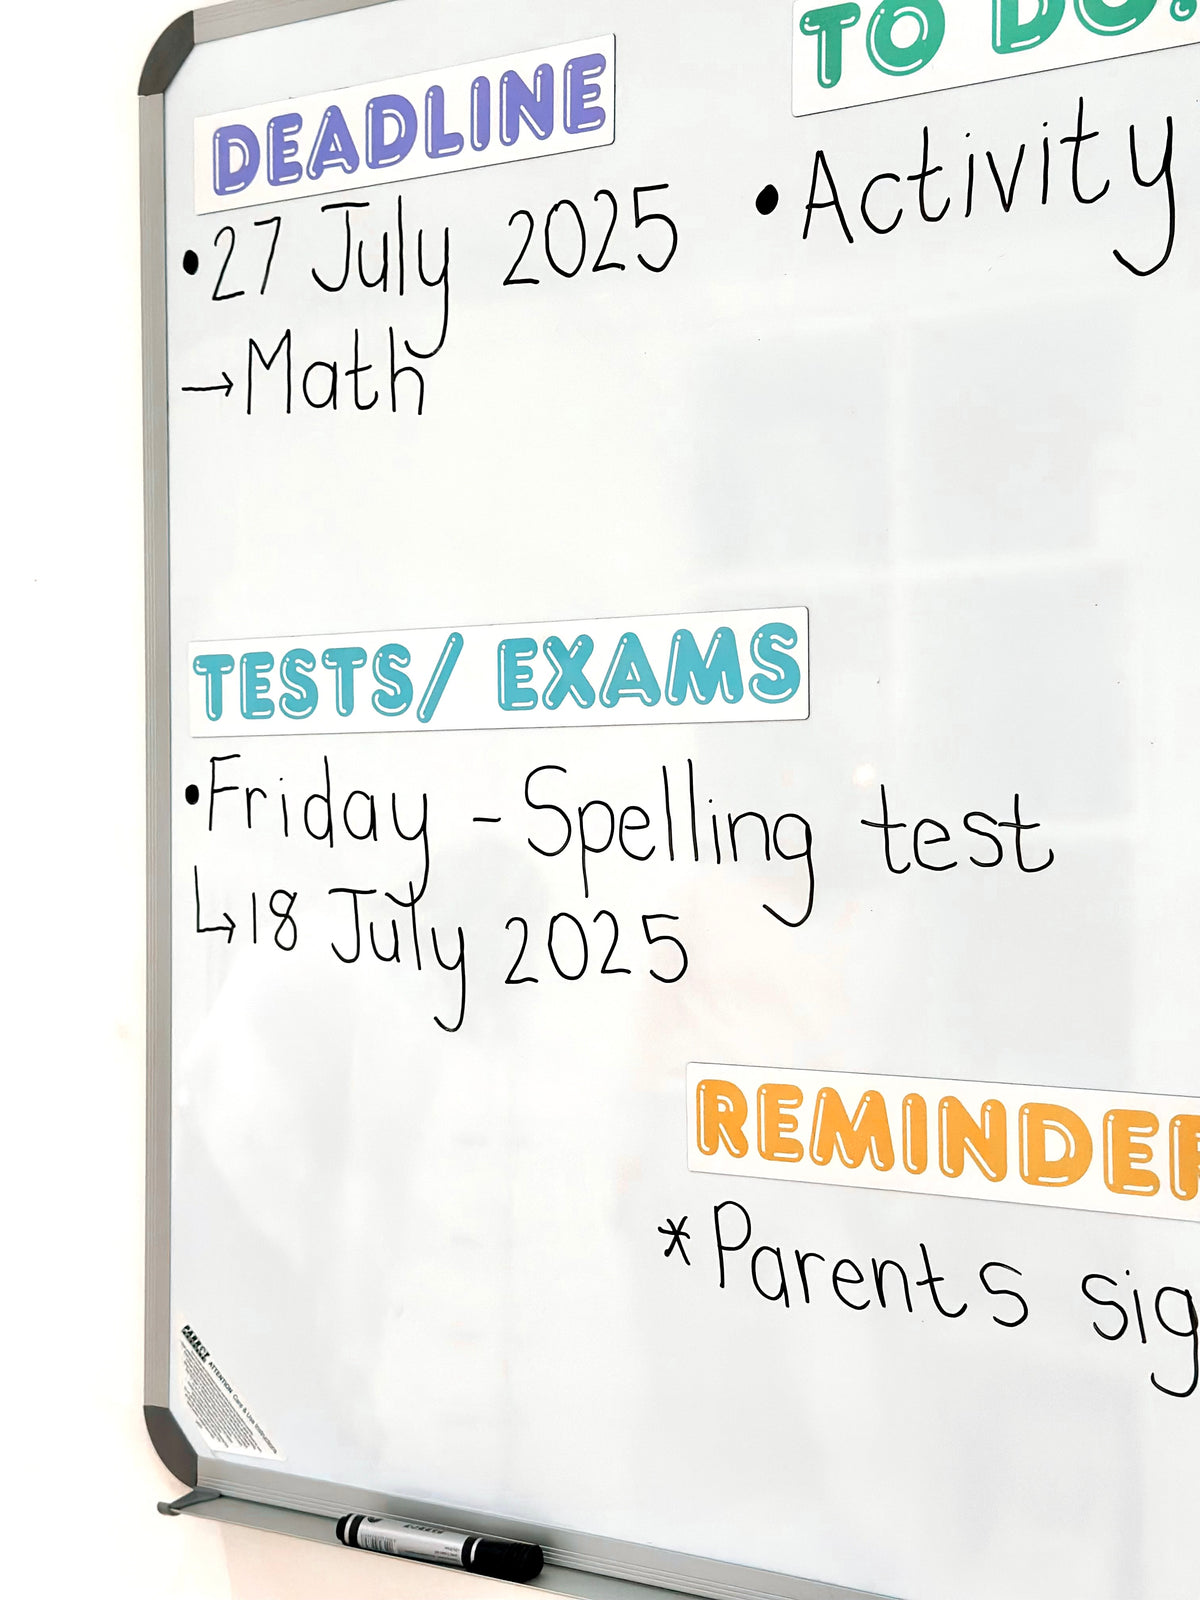 DEADLINE
• 27 July 2025
→ Math
TO DO
• Activity
TESTS/ EXAMS
• Friday - Spelling test
↳ 18 July 2025
REMINDER
* Parents sig
PARROT
ATTENTION Care & Use Instructions